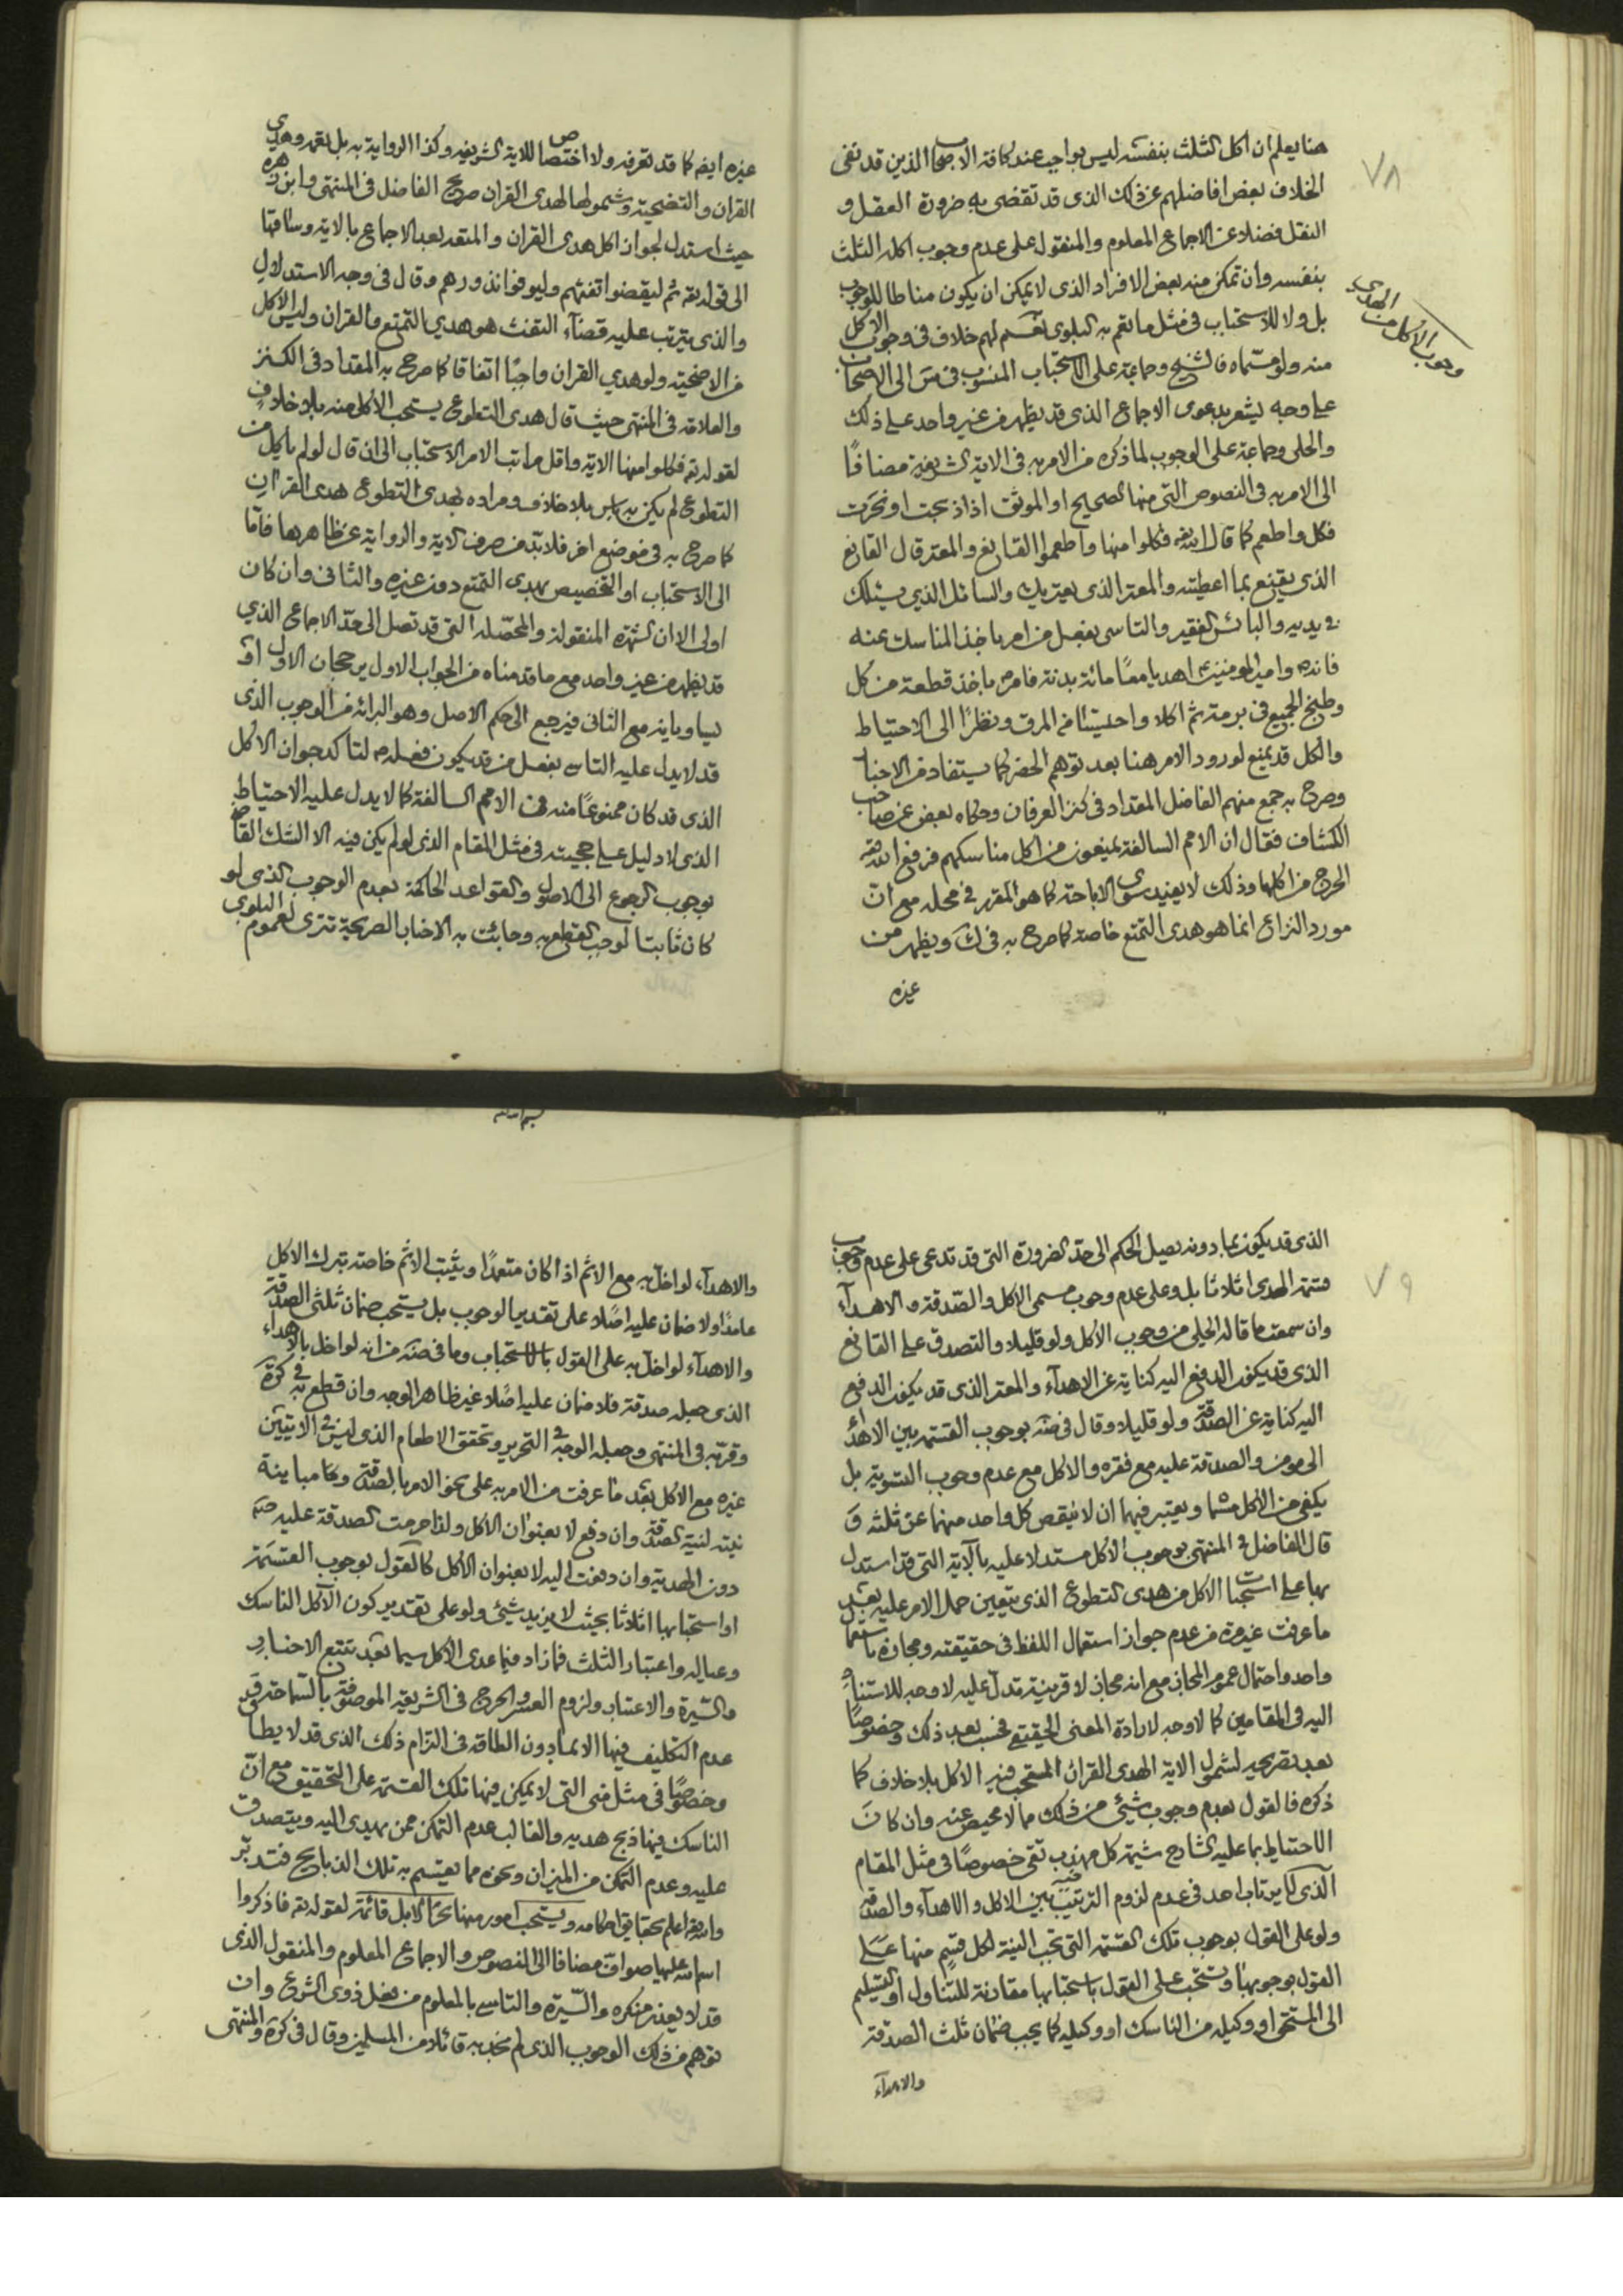 ٧٨
هنا يعلم ان اكل الثلث بنفسه ليس بواجب عند كافة الاصحاب الذين قد نفى
الخلاف بعض افاضلهم عن ذلك الذى قد تقضى به ضرورة العقل و
النقل فضلا عن الاجماع المعلوم والمنقول على عدم وجوب اكله الثلث
بنفسه وان تمكن منه بعض الافراد الذى لا يمكن ان يكون مناطا للوجوب
بل ولا للاستحباب فى مثل ما تعم به البلوى نعم لهم خلاف فى وجوب الاكل
وجوب الاكل من الهدي
منه ولو مسماه فالشيخ وجماعة على الاستحباب المنسوب فى س الى الاصحاب
على وجه يشعر بدعوى الاجماع الذى قد يظهر من غير واحد على ذلك
والحلى وجماعة على الوجوب لما ذكره من الامر به فى الاية الشريفة مضافًا
الى الامر به فى النصوص التى منها الصحيح او الموثق اذا ذبحت او نحرت
فكل واطعم كما قال الله تعه فكلوا منها واطعموا القانع والمعتر قال القانع
الذى يقنع بما اعطيته والمعتر الذى يعتريك والسائل الذى يسئلك
فى يديه والبائس الفقير والتاسى بفعل من امر باخذ المناسك عنه
فانه ص وامير المومنين ع اهديا معًا مائة بدنة فامر ص باخذ قطعة من كل
وطبخ الجميع فى برمة ثم اكلا واحتسيا من المرق ونظرًا الى الاحتياط
والكل قد يمنع لورود الامر هنا بعد توهم الحضر كما يستفاد من الاخبار
وصرح به جمع منهم الفاضل المقداد فى كنز العرفان وحكاه بعض عن صاحب
الكشاف فقال ان الامم السالفة يمنعون من اكل مناسكهم فرفع الله تعه
الحرج من اكلها وذلك لا يفيد سوى الاباحة كما هو المقرر فى محله مع ان
مورد النزاع انما هو هدى التمتع خاصة كما صرح به فى ك ويظهر من
غيره
غيره ايضا كما قد تعرفه ولا اختصاص للاية الشريفه وكذا الرواية به بل تعمه وهدي
القران والتضحية وشمولها لهدى القران صريح الفاضل فى المنتهى وابن زهره
حيث استدل لجواز اكل هدى القران و المتعه بعد الاجماع بالاية وساقها
الى قوله تعه ثم ليقضوا تفثهم وليوفوا نذورهم وقال فى وجه الاستدلال
والذى يترتب عليه قضآء التفث هو هدي التمتع والقران وليس الاكل
من الاضحية ولو هدي القران واجبًا اتفاقا كما صرح به المقداد فى الكنز
والعلامه فى المنتهى حيث قال هدى التطوع يستحب الاكل منه بلا خلاف
لقوله تعه فكلوا منها الاية واقل مراتب الامر الاستحباب الى ان قال لو لم ياكل من
التطوع لم يكن به باس بلا خلاف ومراده بهدى التطوع هدى القران
كما صرح به فى موضع اخر فلا بد من صرف الاية والرواية عن ظاهرها فامّا
الى الاستحباب او التخصيص بهدى التمتع دون غيره والثانى وان كان
اولى الا ان الشهرة المنقولة والمحصّله التى قد تصل الى حدّ الاجماع الذي
قد يظهر من غير واحد مع ما قدمناه من الجواب الاول يرجحان الاول او
يساويانه مع الثانى فيرجع الى حكم الاصل وهو البرائه من الوجوب الذى
قد لا يدل عليه التاسى بفعل من قد يكون فعله ص لتاكد جواز الاكل
الذى قد كان ممنوعًا منه فى الامم السالفة كما لا يدل عليه الاحتياط
الذى لا دليل على حجيته فى مثل المقام الذى لو لم يكن فيه الا الشك القاضى
بوجوب الرجوع الى الاصول والقواعد الحاكمة بعدم الوجوب الذى لو
كان ثابتا لوجب القطع به وجائت به الاخبار الصريحة تترى لعموم البلوى
٧٩
الذى قد يكون بما دونه يصل الحكم الى حدّ الضرورة التى قد تدعى على عدم وجوب
قسمة الهدى اثلاثا بل وعلى عدم وجوب مسمى الاكل والصّدقة والاهدآء
وان سمعت ما قاله الحلى من وجوب الاكل ولو قليلا والتصدق على القانع
الذى قد يكون الدفع اليه كناية عن الاهدآء والمعتر الذى قد يكون الدفع
اليه كناية عن الصدقة ولو قليلا وقال فى ضه بوجوب القسمة بين الاهدآء
الى مومن والصدقة عليه مع فقره والاكل مع عدم وجوب التسوية بل
يكفى من الاكل مسما ويعتبر فيهما ان لا ينقص كل واحد منهما عن ثلثه و
قال الفاضل فى المنتهى بوجوب الاكل مستدلا عليه بالآية التى قد استدل
بها على استحباب الاكل من هدى التطوع الذى يتعين حمل الامر عليه بعد
ما عرفت غير مرة من عدم جواز استعمال اللفظ فى حقيقته ومجازه باستعمال
واحد واحتمال عموم المجاز مع انه مجاز لا قرينة تدل عليه لا وجه للاستناد
اليه فى المقامين كما لا وجه لارادة المعنى الحقيقى فحسب بعد ذلك وخصوصًا
بعد تصريحه لشمول الاية الهدى القران المستحب فيه الاكل بلا خلاف كما
ذكره فالقول بعدم وجوب شئ من ذلك مما لا محيص عنه وان كان
الاحتياط بما عليه الشارع شيمة كل مهذب تقى خصوصًا فى مثل المقام
الذى لا يرتاب احد فى عدم لزوم الترتيب فيه بين الاكل والاهدآء والصدقه
ولو على القول بوجوب تلك القسمة التى تجب النية لكل قسم منها على
القول بوجوبها وتستحب على القول باستحبابها مقارنة للتناول او التسليم
الى المستحق او وكيله من الناسك او وكيله كما يجب ضمان ثلث الصدقة
والاهدآء
والاهدآء لو اخل به مع الاثم اذا كان متعمدًا ويثبت الاثم خاصة بترك الاكل
عامدًا ولا ضمان عليه اصلا على تقدير الوجوب بل يستحب ضمان ثلثى الصدقة
والاهدآء لو اخل به على القول بالاستحباب وما فى ضه من انه لو اخل بالاهداء
الذى جعله صدقة فلا ضمان عليه اصلا غير ظاهر الوجه وان قطع به فى كره
وقربه فى المنتهى وجعله الوجه فى التحرير وتحقق الاطعام الذى ليس فى الايتين
غيره مع الاكل بعد ما عرفت من الامر به على نحو الامر بالصدقة وكا مباينة
نيته لنية الصدقة وان دفع لا بعنوان الاكل ولذا حرمت الصدقة عليه ص
دون الهدية وان دفعت اليه لا بعنوان الاكل كالقول بوجوب القسمة
او استحبابها اثلاثا بحيث لا يزيد شئ ولو على تقدير كون الآكل الناسك
وعياله واعتبار الثلث فما زاد فيما عدى الاكل سيما بعد تتبع الاخبار
والسّيرة والاعتبار ولزوم العسر والحرج فى الشريعة الموصوفة بالسّماحة و
عدم التكليف فيها الا بما دون الطاقة فى التزام ذلك الذى قد لا يطاق
وخصوصًا فى مثل منى التى لا يمكن فيها تلك القسمة على التحقيق مع انّ
الناسك فيها ذبح هديه والغالب عدم التمكن ممن يهدى اليه ويتصدق
عليه وعدم التمكن من الميزان ونحوه مما يقسم به تلك الذبايح فتدبّر
والله تعه اعلم بحقايق احكامه ويستحب امور منها نحر الابل قائمة لقوله تعه فاذكروا
اسم الله عليها صواف مضافا الى النصوص والاجماع المعلوم والمنقول الذى
قد لا يعذر منكره والسّيرة والتاسى بالمعلوم من فعل ذوى الشرع وان
توهم من ذلك الوجوب الذى لم نجد به قائلا من المسلمين وقال فى كره والمنتهى